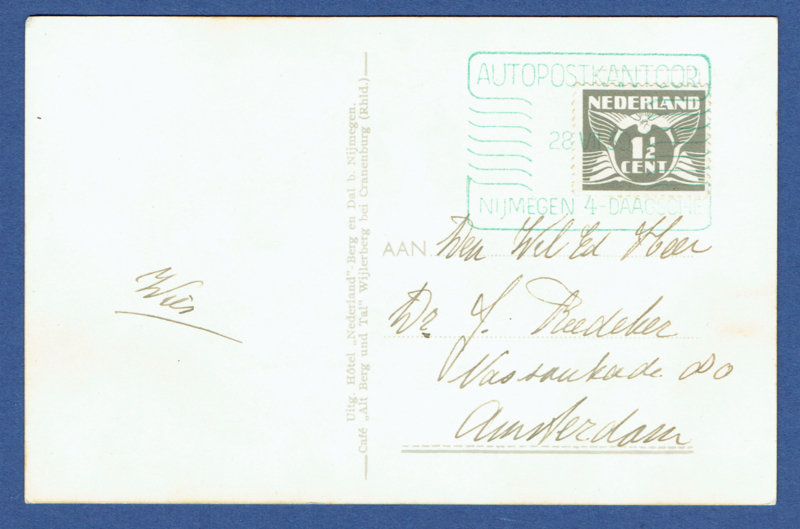 AUTOPOSTKANTOOR
NEDERLAND
28 VII
1 1/2
CENT
NIJMEGEN 4-DAAGSCHE
Uitg. Hôtel „Nederland"-Berg en Dal b. Nijmegen.
Café „Alt Berg und Tal" Wijlerberg bei Cranenburg (Rhld.)
AAN Den Wel Ed Heer
Dr J.
Nassaukade 80
Amsterdam